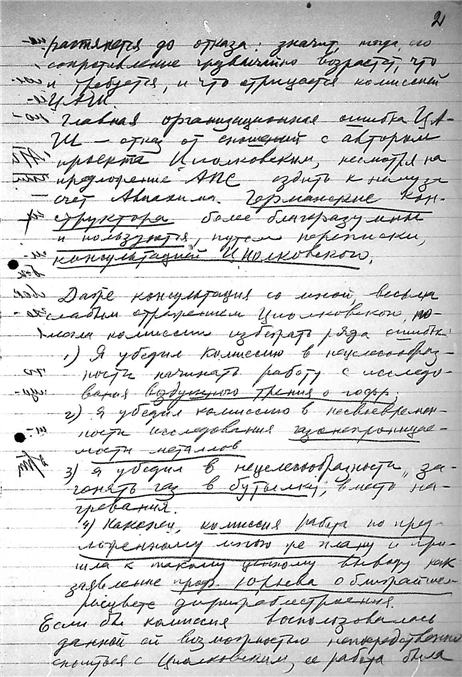 2
растянется до отказа: значит, тогда, его
сопротивление чрезвычайно возрастет, что
и требуется, и что отрицается комиссией
ЦАГИ.
Главная организационная ошибка ЦА-
ГИ — отказ от сношений с автором
проекта Циолковским, несмотря на
предложение АПС ездить к нему за
счет Авиахима. Германские кон-
структора более благоразумны
и пользуются, путем переписки,
консультацией Циолковского.
Даже консультация со мной весьма
слабым отражением Циолковского, по-
могла комиссии избежать ряда ошибок:
1) Я убедил комиссию в нецелесообраз-
ности начинать работу с исследо-
вания воздушного трения о гофры,
2) Я убедил комиссию в несвоевремен-
ности исследования газонепроницае-
мости металлов
3) Я убедил в нецелесообразности "за-
гонять газ в бутылки", вместо на-
гревания.
4) Наконец, комиссия работ по пред-
ложенному мною ей плану и при-
шла к такому ценному выводу как
заявление проф. Юрьева о ближайшем
расцвете дирижаблестроения.
Если бы комиссия воспользовалась
данной ей возможностью непосредственно
сноситься с Циолковским, ее работа была